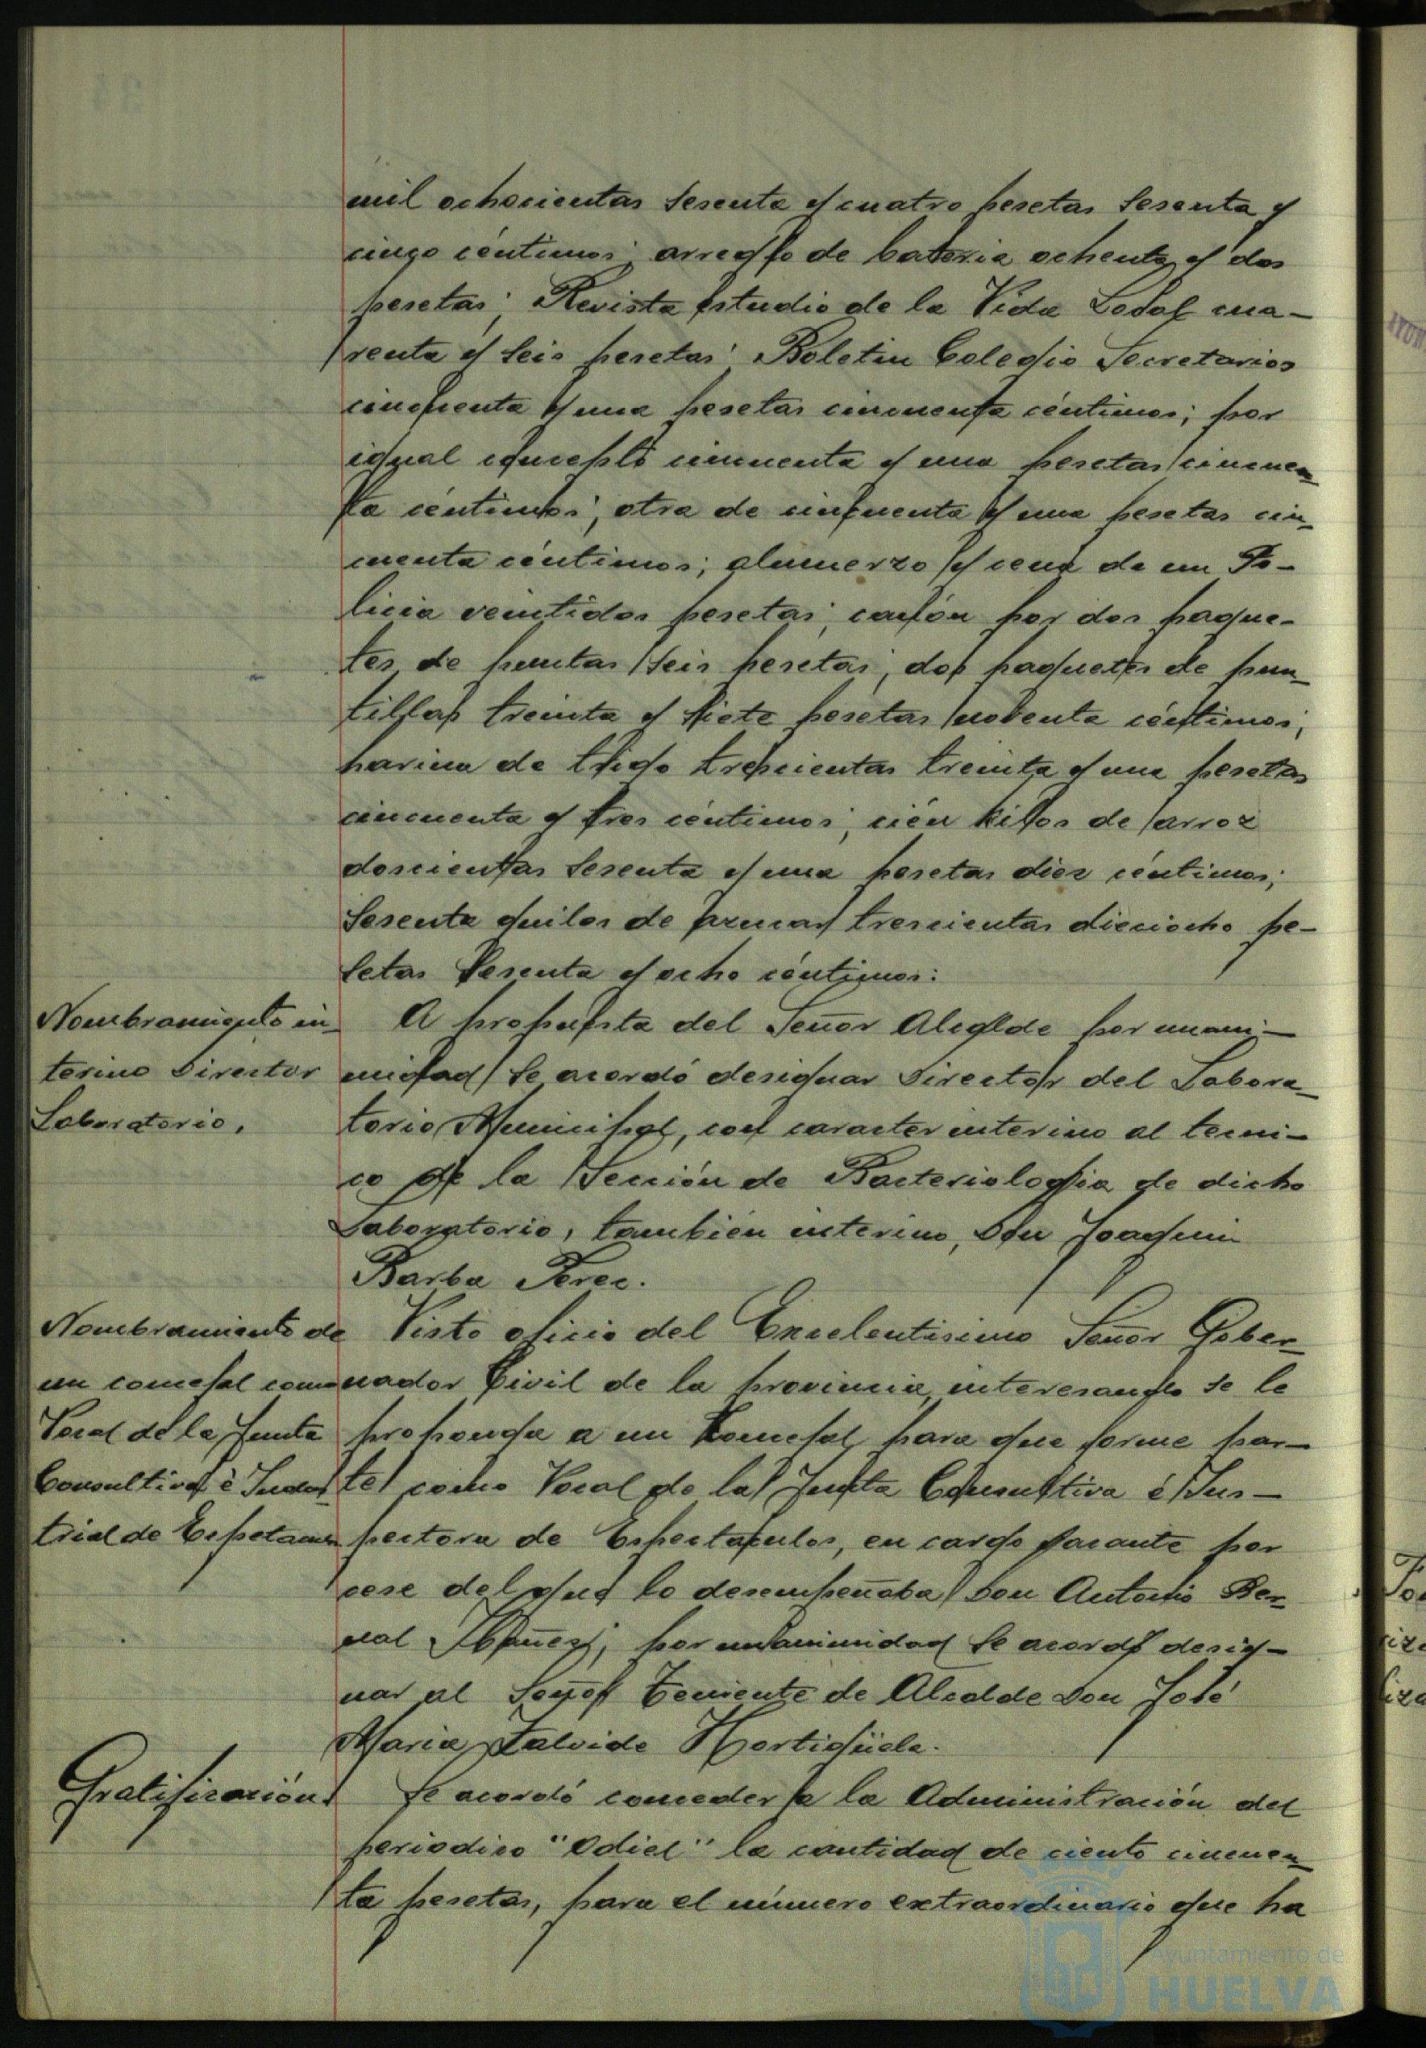 mil ochocientas sesenta y cuatro pesetas sesenta y
cinco céntimos; arreglo de bateria ochenta y dos
pesetas; Revista Estudio de la Vida Local cua-
renta y seis pesetas; Boletin Colegio Secretarios
cincuenta y una pesetas cincuenta céntimos; por
igual concepto cincuenta y una pesetas cincuen-
ta céntimos; otra de cincuenta y una pesetas cin-
cuenta céntimos; almuerzo y cena de un Po-
licia veintidos pesetas; por dos paque-
tes de puntas seis pesetas; dos paquetes de pun-
tillas treinta y siete pesetas noventa céntimos;
harina de trigo trescientas treinta y una pesetas
cincuenta y tres céntimos; cien kilos de arroz
doscientas sesenta y una pesetas diez céntimos;
sesenta quilos de azucar trescientas dieciocho pe-
setas sesenta y ocho céntimos:
Nombramiento in-
terino Director
Laboratorio.
A propuesta del Señor Alcalde por unani-
midad se acordó designar Director del Labora-
torio Municipal, con caracter interino al tecni-
co de la Sección de Bacteriologia de dicho
Laboratorio, tambien interino, Don Joaquin
Barba Perez.
Nombramiento de
un concejal como
Vocal de la Junta
Consultiva è Indus-
trial de
Visto oficio del Excelentisimo Señor Gober-
nador Civil de la provincia, interesando se le
proponga a un Concejal para que forme par-
te como Vocal de la Junta Consultiva é Ins-
pectora de Espectaculos, en cargo vacante por
cese del que lo desempeñaba Don Antonio Ber-
nal Ibañez; por unanimidad se acordó desig-
nar al Señor Teniente de Alcalde Don José
Maria Zalvide Hortigüela.
Gratificación.
Se acordó conceder a la Administración del
periodico "Odiel" la cantidad de ciento cincuen-
ta pesetas, para el número extraordinario que ha
Ayuntamiento de
HUELVA